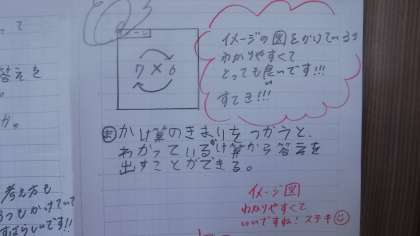 って
答えを
。
か。
考え方も
うもかけていて
すばらしいです!!
イメージ
7×6
イメージの図をかけているの
わかりやすくて
とっても良いです!!!
すてき!!!
ま かけ算のきまりをつかうと、
わかっているかけ算から答えを
出すことができる。
イメージ図
わかりやすくて
いいですね!ステキ